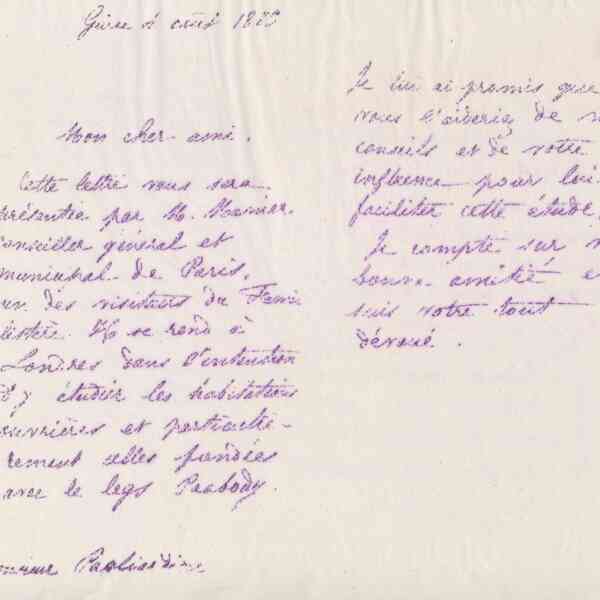 Guise 4 août 18
Mon cher ami.
Cette lettre vous sera
présentée par M.
Conseiller général et
municipal de Paris,
un des visiteurs du Fami
listère. Il se rend à
Londres dans l'intention
d'y étudier les habitations
ouvrières et particuliè-
rement celles fondées
avec le legs Peabody.
Je lui ai promis que
vous l'aideriez de
conseils et de votre
influence pour lui
faciliter cette étude.
Je compte sur
bonne amitié et
suis votre tout
dévoué.